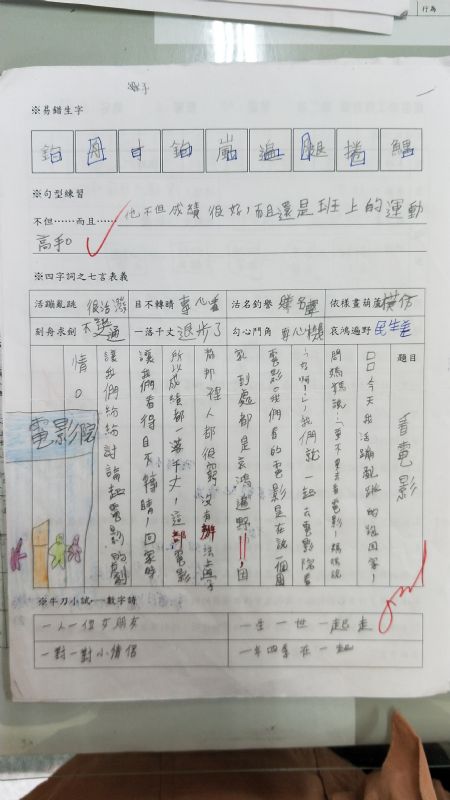 行為
※易錯生字
鉑 舟 寸 鉑 嵐 遍 腿 捲 觸
※句型練習
不但……而且…… 他不但成績很好,而且還是班上的運動
高手
※四字詞之七言表義
活蹦亂跳 很活潑 目不轉睛 專心看 沽名釣譽 依樣畫葫蘆 模仿
刻舟求劍 不變通 一落千丈 退步了 勾心鬥角 哀鴻遍野
題目 看電影
口口今天我活蹦亂跳的跑回家,
問媽媽說:「要不要去看電影」媽媽說
:「好啊!」我們就一起去電影院看
電影。我們看的電影是在說一個國
家到處都是哀鴻遍野!!,因
為那裡人都很窮,沒有辦法上學,
所以成績都一落千丈,這部電影
讓我們看得目不轉睛,回家時
讓我們紛紛討論起電影的劇
情。
電影院
※牛刀小試--數字詩
一人一個女朋友 一生一世一起走
一對一對小情侶 一年四季在一起